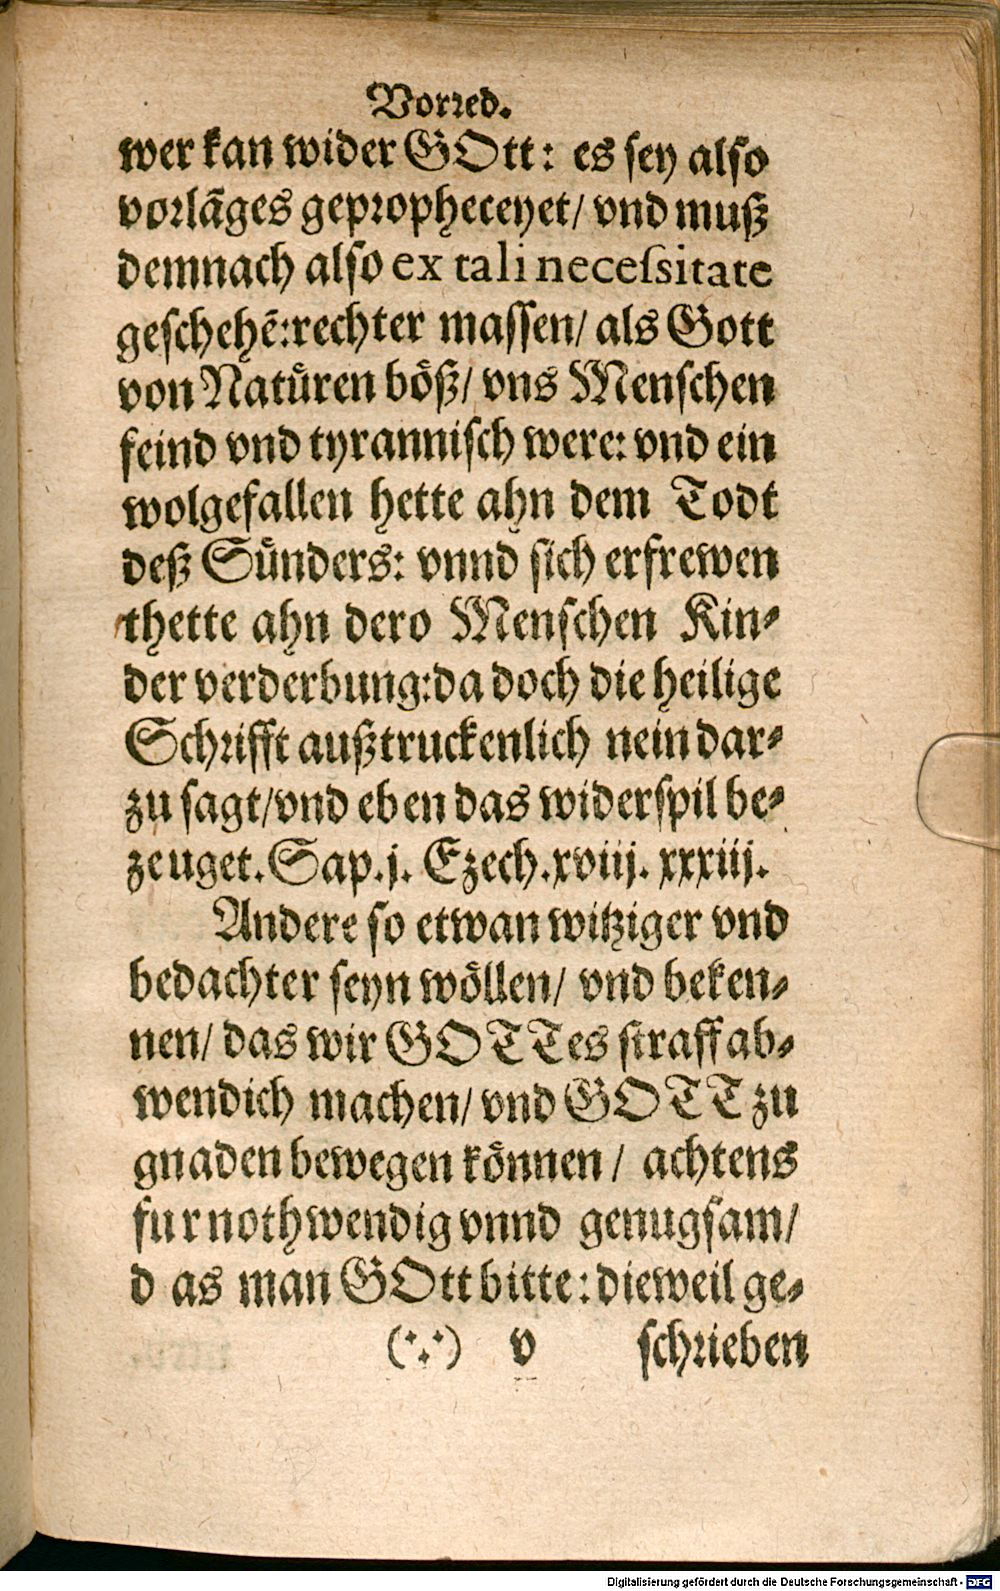 Vorred.
wer kan wider GOtt: es sey also
vorlãges gepropheceyet/ vnd muß
demnach also ex tali necessitate
geschehẽ:rechter massen/ als Gott
von Natůren böß/ vns Menschen
feind vnd tyrannisch were: vnd ein
wolgefallen hette ahn dem Todt
deß Sünders: vnnd sich erfrewen
thette ahn dero Menschen Kin-
der verderbung:da doch die heilige
Schrifft außtruckenlich nein dar-
zu sagt/vnd eben das widerspil be-
zeuget. Sap.j. Ezech.xviij. xxxiij.
Andere so etwan witziger vnd
bedachter seyn wöllen/ vnd beken-
nen/ das wir GOTTes straff ab-
wendich machen/ vnd GOTT zu
gnaden bewegen können/ achtens
fur nothwendig vnnd genugsam/
d as man GOtt bitte: dieweil ge-
(∵) v schrieben
Digitalisierung gefördert durch die Deutsche Forschungsgemeinschaft - DFG